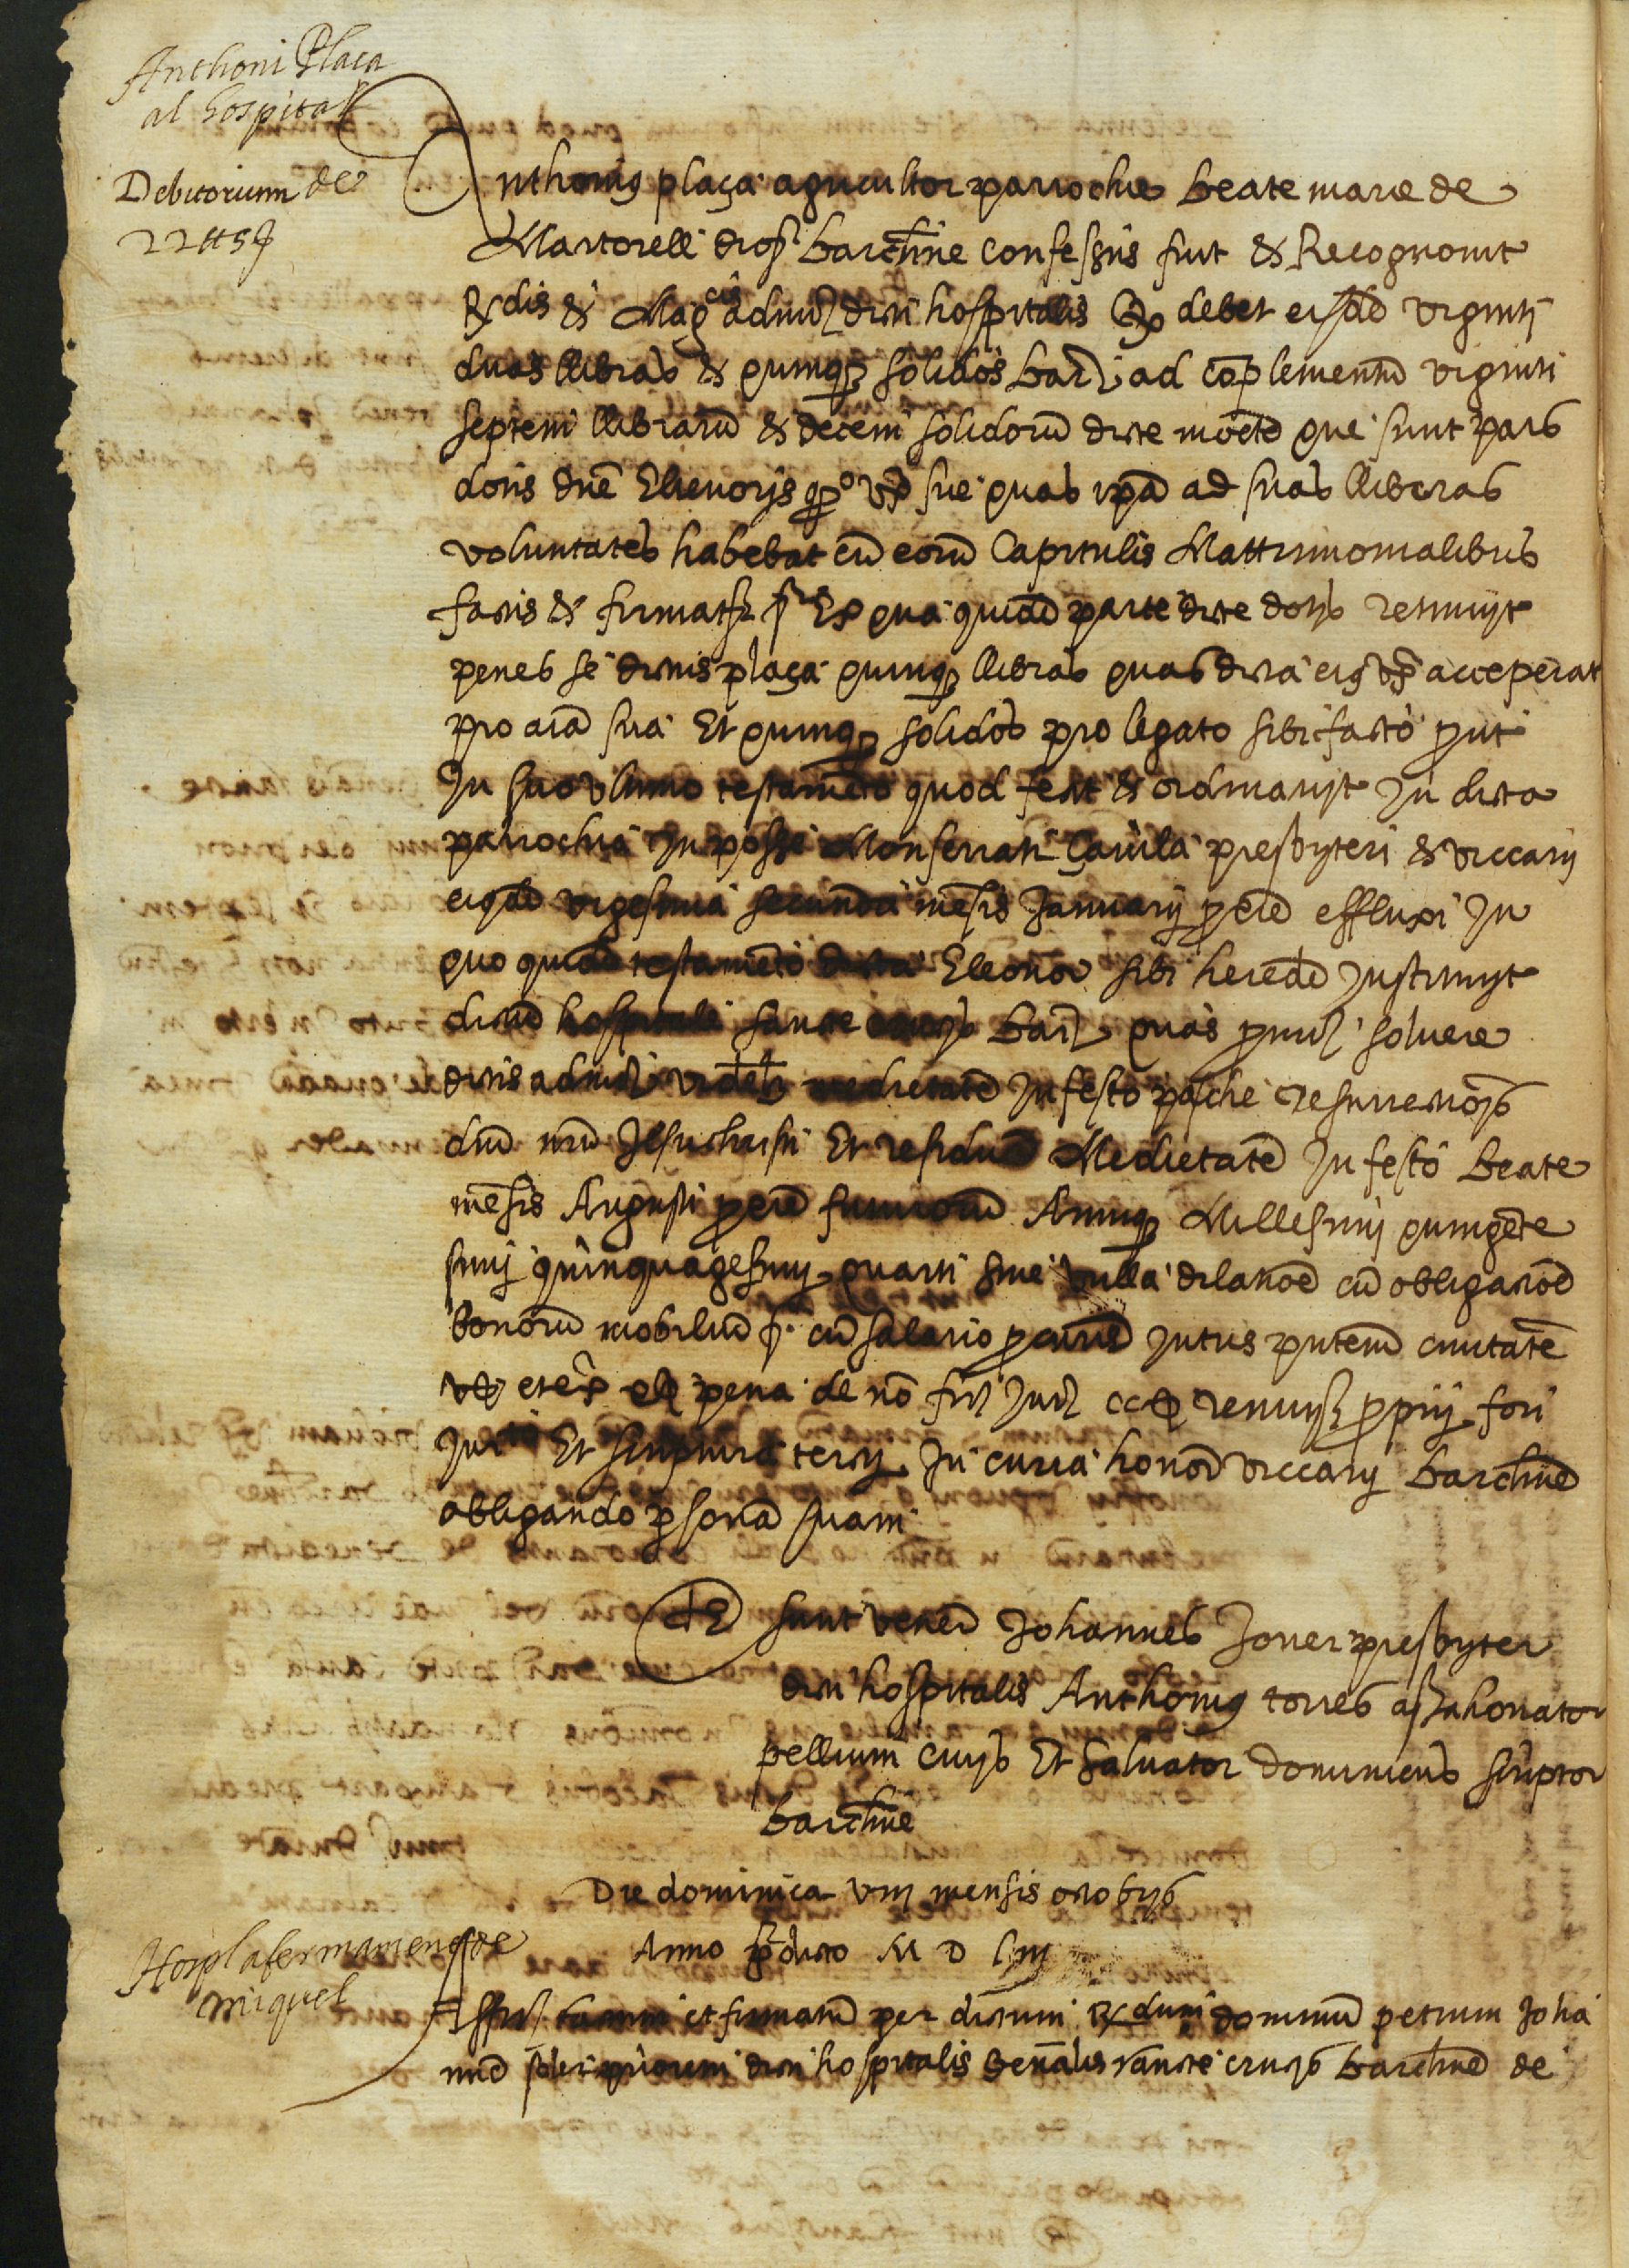 Anthoni Plaça
al hospital
Debitorium de
22 ll 5 s
Anthonius plaça agricultor parrochie beate marie de
Martorell dioc barchne confessus fuit & Recognovit
Rdis & Magcis admi dicti hospitalis qp debet eisdē viginti
duas llibras & quinq solidos bar ad cōplementū viginti
septem llibrarū & decem solidorū dicte monete que sunt pars
dotis dne Elienoris qo ux sue quas ipā ad suas lliberas
voluntates habebat cū eorū Capitulis Mattrimonialibus
factis & firmatis Ex qua quidē parte dicte dotis retinuyt
penes se dictus plaça quinq llibras quas dicta eius ux acceperat
pro aiā sua Et quinq solidos pro legato sibi facto prut
In suo ultimo testamēto quod fecit & ordinavyt In dicta
parrochia In posse Monserrati Çavila presbyteri & viccarij
eiusdē vigesima secunda mēsis Januarij pxiē effluxi In
quo quidē testamēto dicta Elieonor sibi herede Instituyt
dictū hospitale sancte crucis bar quas promi solvere
dictis admi vidělz medietatē In festo pasche resurrectiōis
dnī nrī Jesuchristi Et residuā Medietatē In festo beate
mēsis Augusti pxiē futurorū Anniq Millesimj quingēte
simj quinquagesimj quarti sine vulla dilatiōe cū obligatiōe
bonorū mobiliū cū salario procuris Intus presentē civitatē
et pena de nō fir Jur renuys proprij fori
Et scriptura tercij In curia honor viccarij barchnē
obligando psonā suam
TE sunt venēr Johannes Jover presbyter
dicti hospitalis Anthonius torres assahonator
pellium civis Et Salvator domimenes scriptor
barchne
Die dominica viij mensis octobris
Anno pdicto M D liij
Hospl afermament de
miquel
et firmatū per dictum Rdum dominū petrum Joha
nnē priorem dicti hospitalis Generalis sancte crucis barchnē de